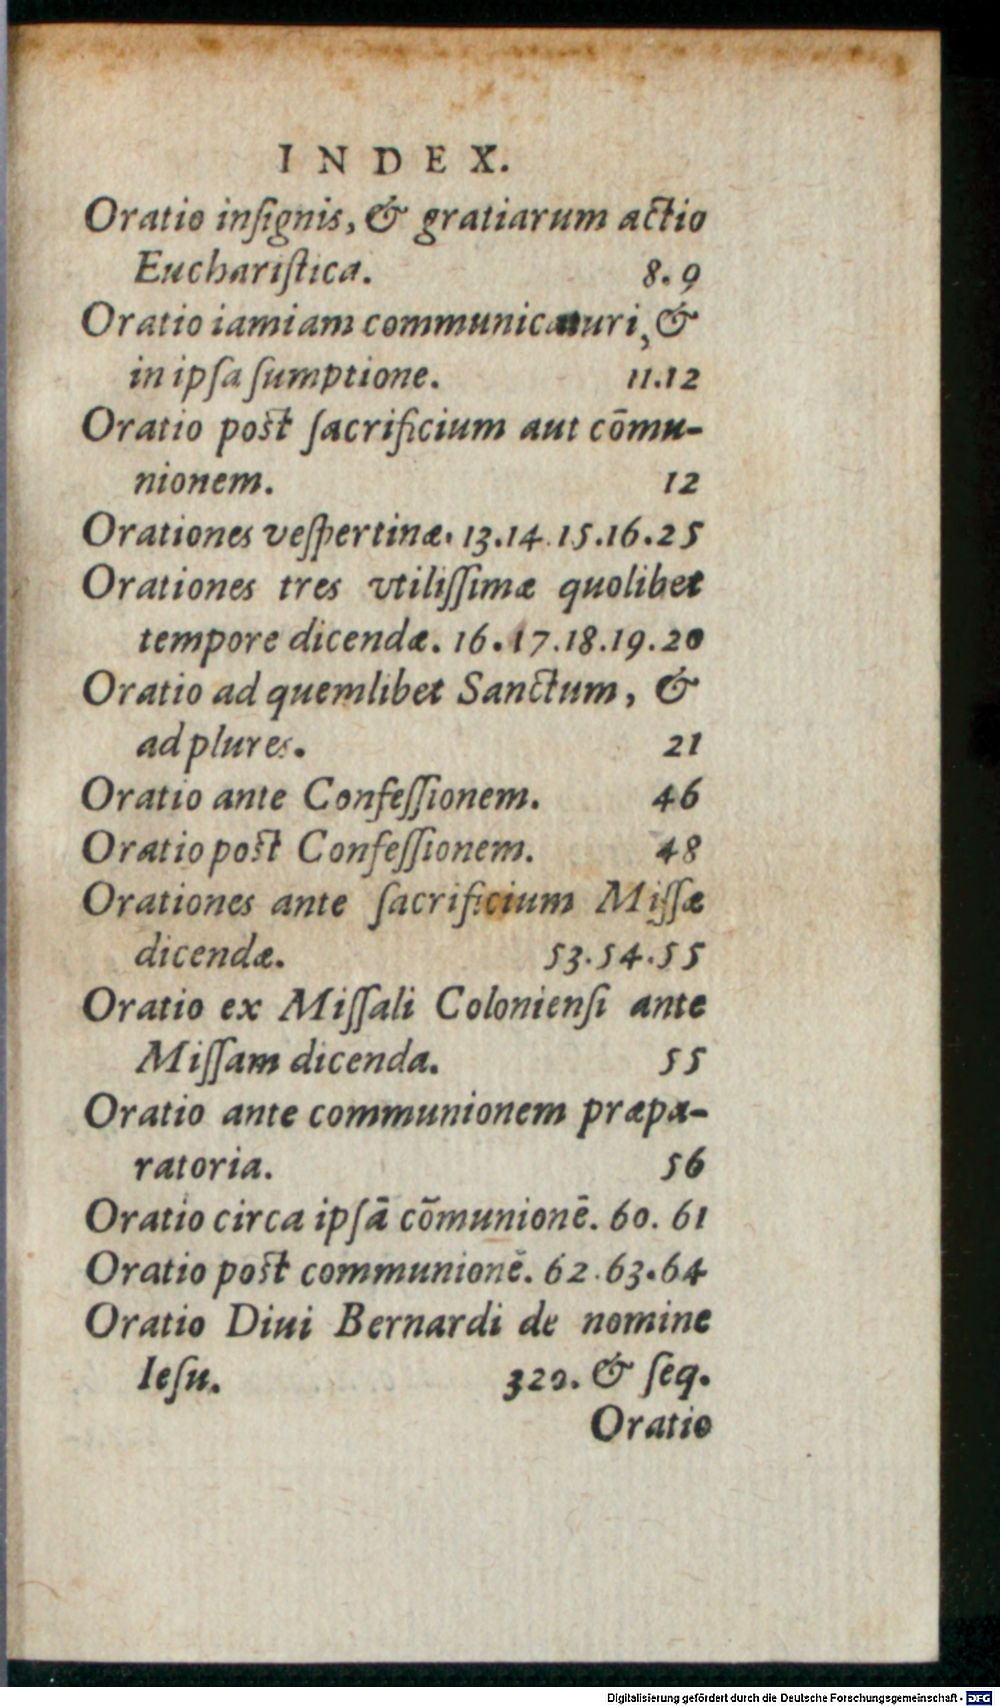 INDEX.
Oratio inſignis, & gratiarum actio
Euchariſtica. 8. 9
Oratio iamiam communicaturi, &
in ipſa ſumptione. 11.12
Oratio poſt ſacrificium aut cōmu-
nionem. 12
Orationes veſpertinæ. 13.14.15.16.25
Orationes tres vtiliſſimæ quolibet
tempore dicendæ. 16.17.18.19.20
Oratio ad quemlibet Sanctum, &
ad plures. 21
Oratio ante Confeſſionem. 46
Oratio poſt Confeſſionem. 48
Orationes ante ſacrificium Miſſæ
dicendæ. 53.54.55
Oratio ex Miſſali Colonienſi ante
Miſſam dicenda. 55
Oratio ante communionem præpa-
ratoria. 56
Oratio circa ipſā cōmunionē. 60. 61
Oratio poſt communionē. 62.63.64
Oratio Diui Bernardi de nomine
Ieſu. 320. & ſeq.
Oratio
Digitalisierung gefördert durch die Deutsche Forschungsgemeinschaft - DFG